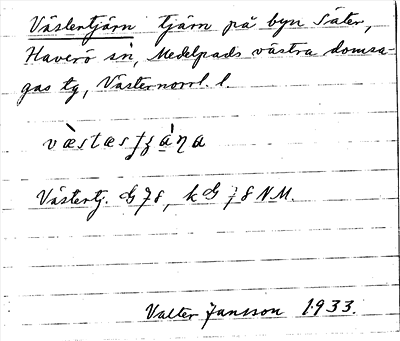 Västertjärn tjärn på byn Säter,
Haverö sn, Medelpads västra domsa-
gas tg, Västernorrl. l.
Västertj. G78, kG 78 NM.
Valter Jansson 1933.